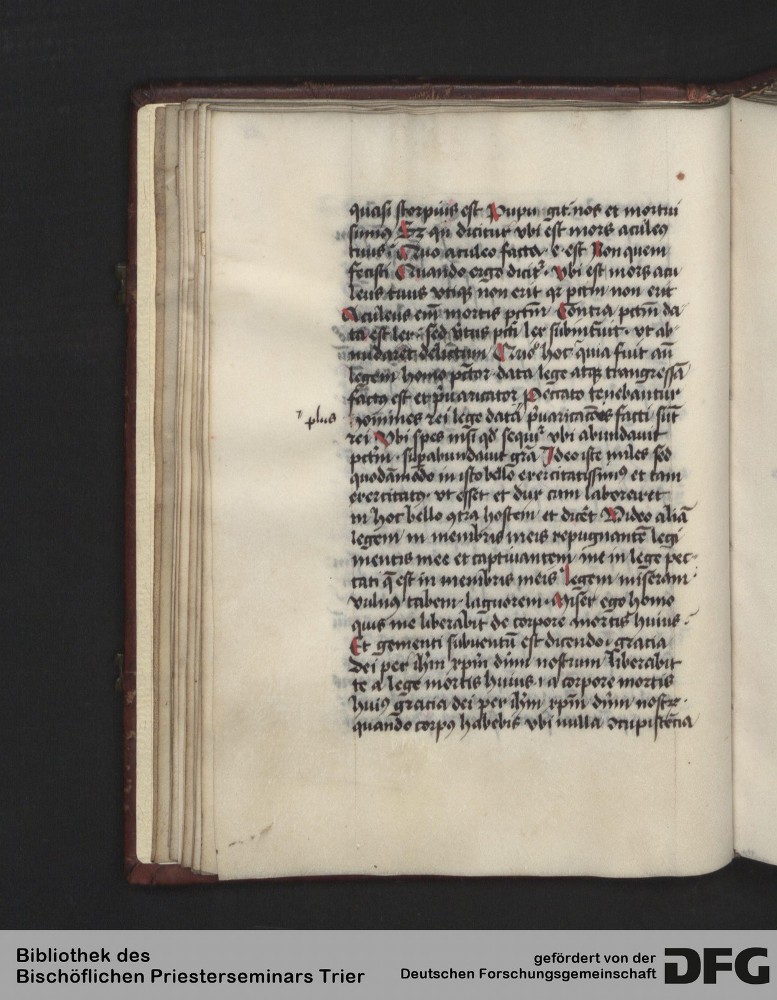 quasi scorpius est Pupu git nos et mortui
sumus Et qn dicitur vbi est mors aculeus
tuus Quo aculeo facta e est Non quem
fecisti Quando ergo dicit᷑ Vbi est mors acu
leus tuus vtiqꝫ non erit qr pctm non erit
Aculeus em̄ mortis pctm̄ Contra pctm̄ da
ta est lex sed v̄tus pcti lex subintuit vt ab
undaret delictum Quō hoc quia fuit an̄
legem homo pctor data lege atqꝫ transgressa
factꝯ est et p̄uaricator Peccato tenebantur
plus
homines rei lege data p̄uaricatōes facti sūt
rei Vbi spes nisi qd sequit᷑ vbi abundauit
pctm̄ supabundauit grā Ideo iste miles sed
quodāmodo in isto bello exercitatissimꝯ et tam
exercitatꝯ vt esset et dux cum laboraret
in hoc bello ꝯtra hostem et dicēt Video aliā
legem in membris meis repugnantē legi
mentis mee et captiuantem me in lege pec
cati q̄ est in membris meis legem miseram
vulnꝯ tabem laguorem Miser ego homo
quis me liberabit de corpore mortis huius
Et gementi subuentū est dicendo gracia
dei per ihm̄ xpm̄ dnm̄ nostrum liberabit
te a lege mortis huius a corpore mortis
huiꝯ gracia dei per ihm̄ xpm̄ dnm̄ nostr
quando corpꝯ habebis vbi nulla ꝯcupiscēcia
Bibliothek des
Bischöflichen Priesterseminars Trier
gefördert von der
Deutschen Forschungsgemeinschaft
DFG